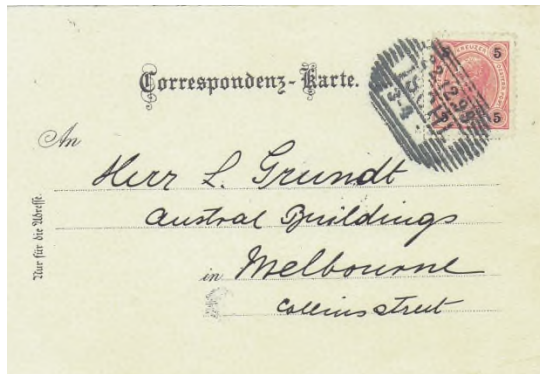 5 KREUZER 5
5 5
12.12.98
3-4
Correspondenz-Karte.
An
Herr L. Grundt
Austral Buildings
in Melbourne
Collins street
Nur für die Adresse.